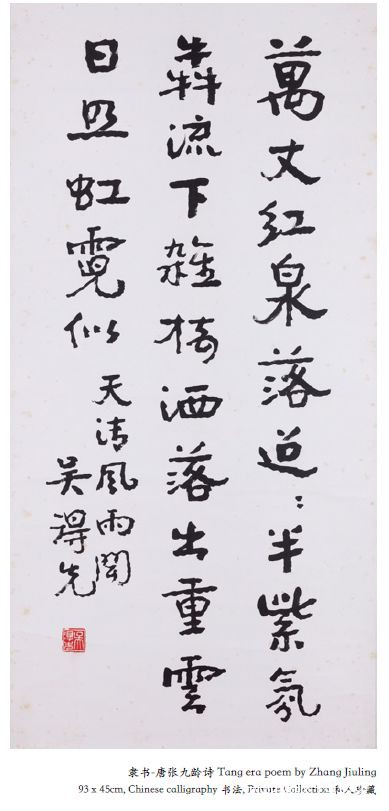 萬丈紅泉落迢〻半紫氛
犇流下雜樹洒落出重雲
日照虹霓似
天清風雨聞
吴得先
隶书-唐张九龄诗 Tang era poem by Zhang Jiuling
93 x 45cm, Chinese calligraphy 书法, Private Collection 私人珍藏